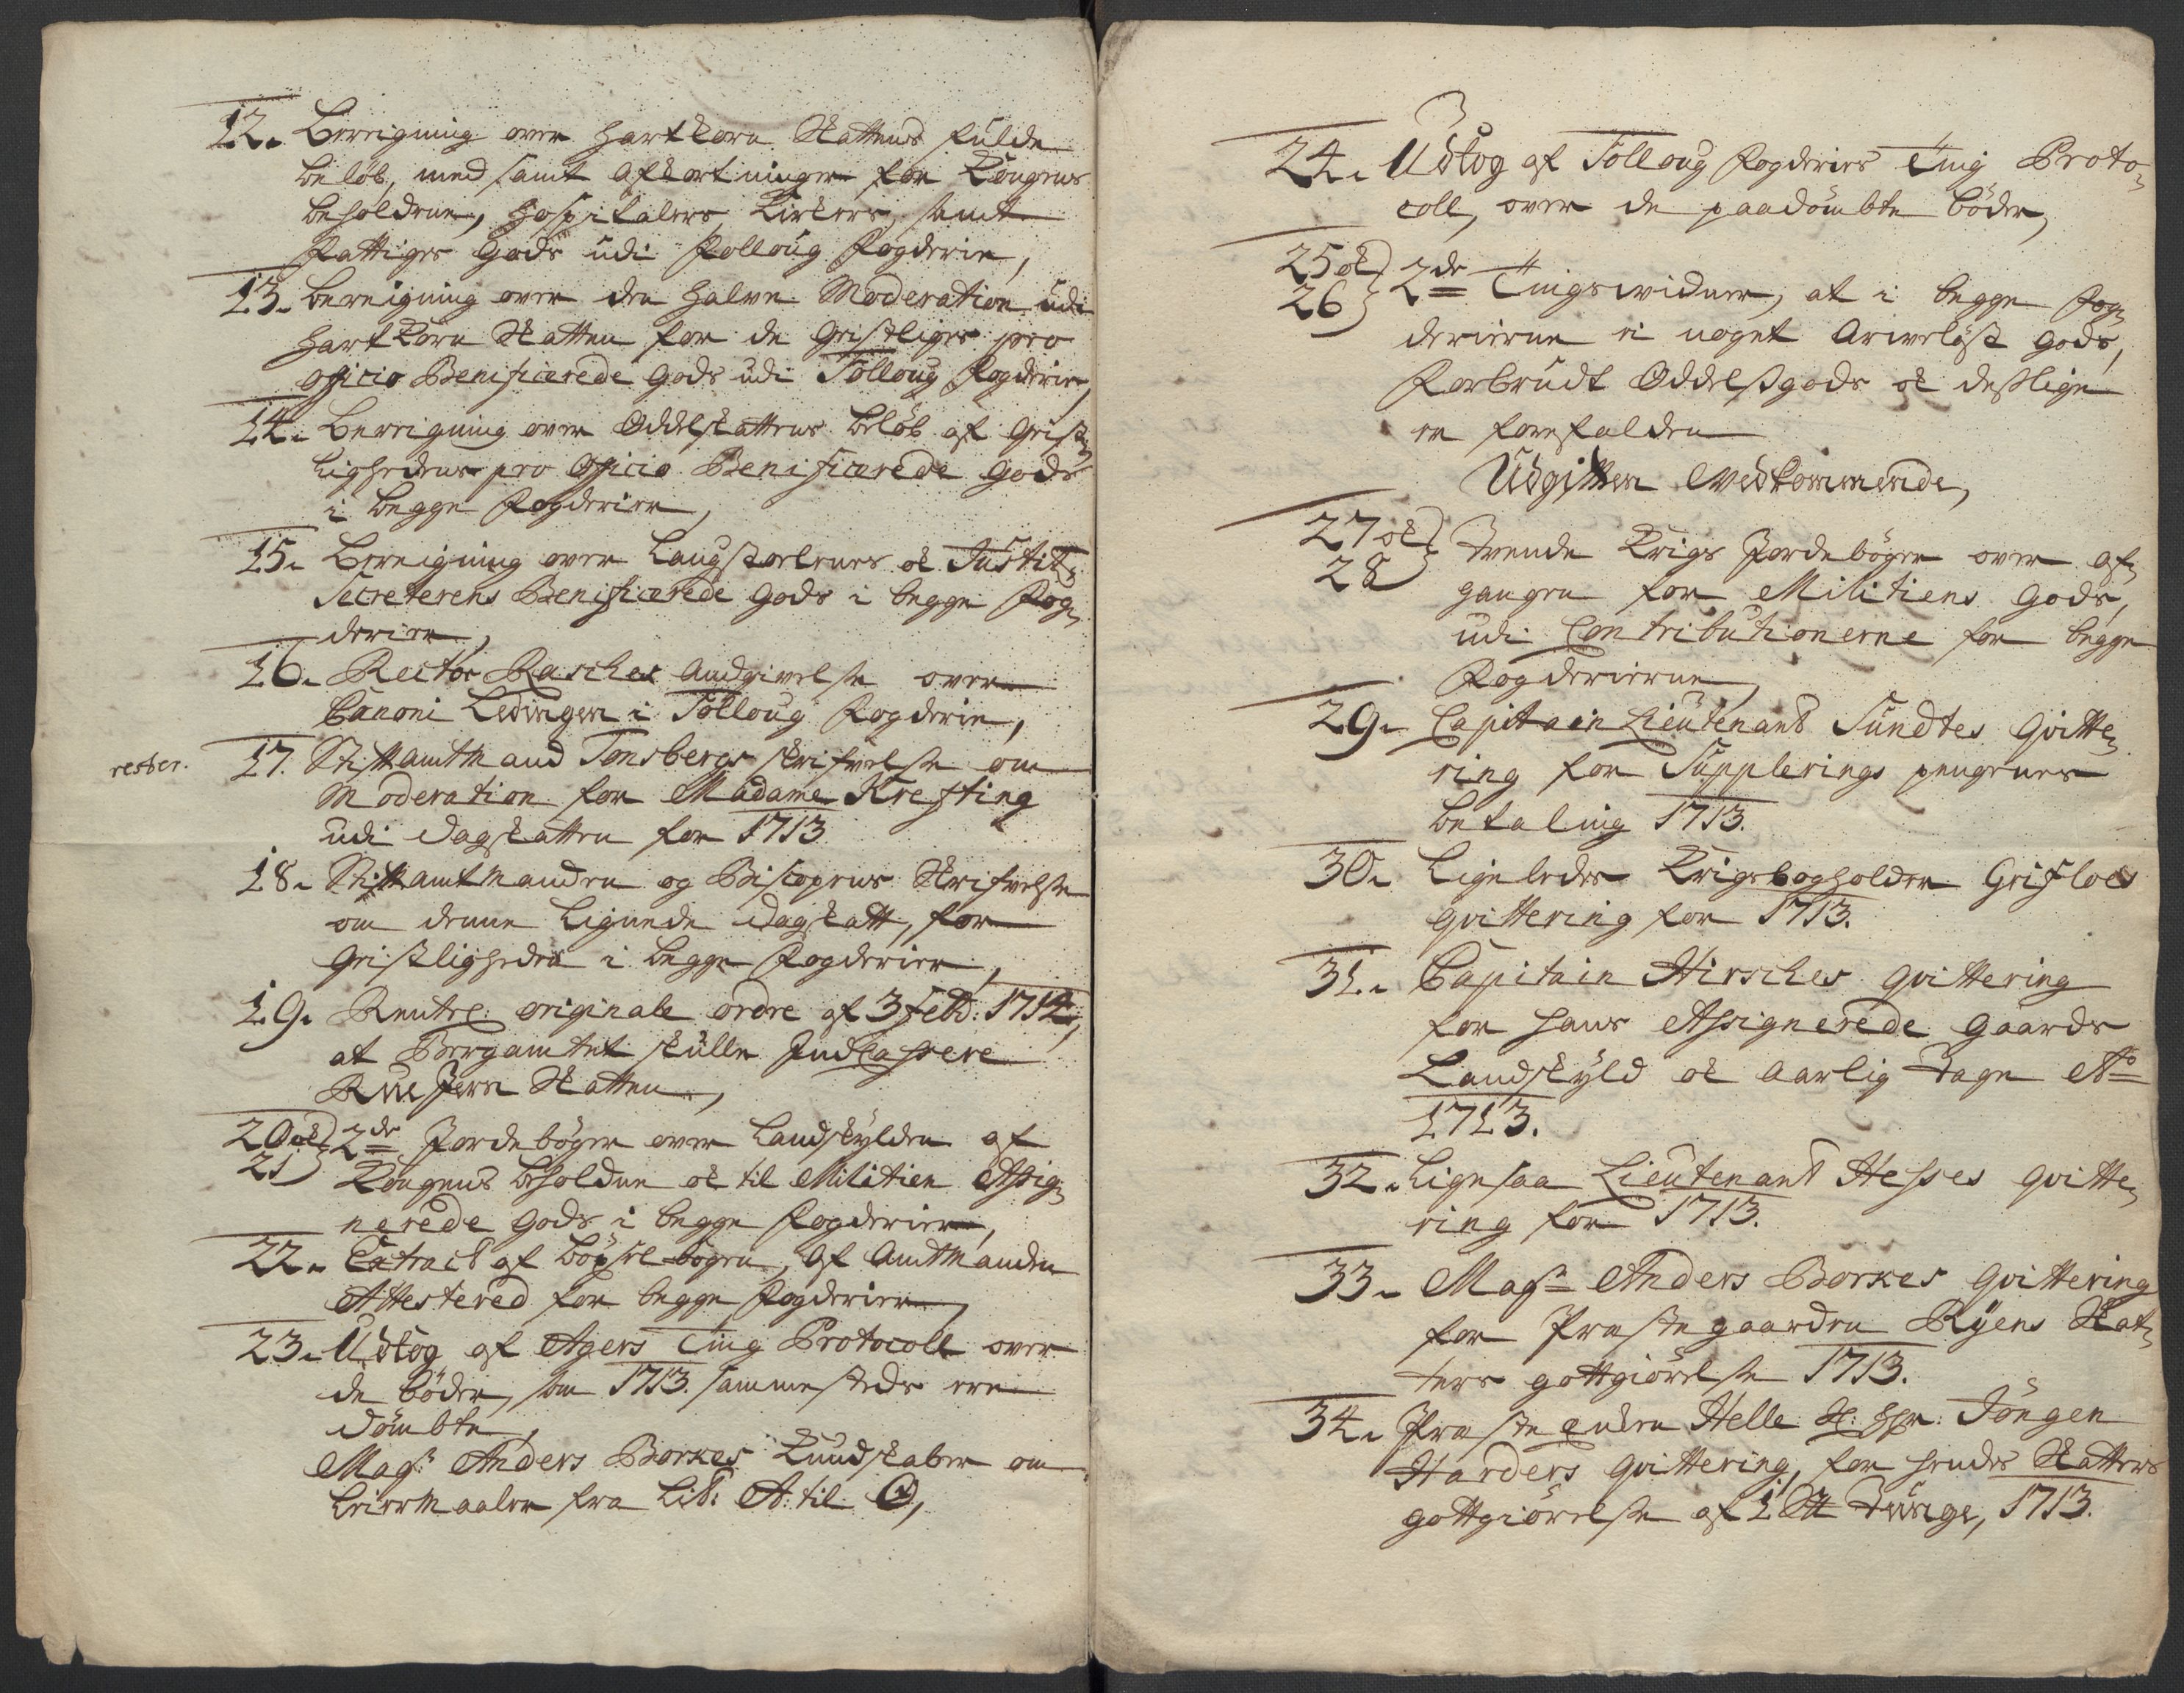 12. Beregning over Hartkorn Skattens fulde
beløb, med samt afkortninger for Kongens
beholdene, Hospitalers, Kirkers, samt
Fattiges Gods udi Folloug Fogderie,
13. Beregning over den halve Moderation udi
Hartkorn Skatten for de Geistliges pro
officio Benificerede Gods udi Folloug Fogderie,
14. Beregning over Oddelskattens beløb af Geist-
lighedens pro Officio Benificerede Gods
i begge Fogderier,
15. Beregning over Laugstoelens ok Justit-
Secreterens Benificerede Gods i begge Fog-
derier,
16. Rector Rasches Andgivelse over
Canoni Ledingen i Folloug Fogderie,
rester. 17. Stiftamtmand Tonsbergs skrifvelse om
Moderation for Madame Krefting
udi Dagskatten for 1713
18. Stiftamtmanden og Biscopens Skrifvelse
om denne lignede Dagskatt, for
Geistligheden i begge Fogderier,
19. Rentre: originale ordre af 3 Feb: 1714,
at Bergamtet skulle Indcassere
Rue Jern Skatten,
20 ok 2de Jordebøger over Landskylden af
21 Kongens beholdne ok til Militien Assig-
nerede Gods i begge Fogderier,
22. Extract af böxsel bogen, af Amtmanden
Attestered for begge Fogderier,
23. Udtog af Agers Ting Protocoll over
de bøder, som 1713. sammesteds ere
dömbte,
Mag: Anders Borkes Kundskaber om
Leiermaaler fra Lit: A: til O,
24. Udtog af Folloug Fogderies Ting Proto-
coll, over de paadömbte böder,
25 ok 2de Tingsvidner, at i begge Fog-
26 derierne ei noget Arvelöst Gods,
Forbrudt Oddelsgods ok deslige
er forefalden
Udgiften Vedkommende,
27 ok Tvende Krigs Jordebøger over Af-
28 gangen for Militiens Gods,
udi Contributionerne for begge
Fogderierne,
29. Capitain Lieutenant Sundtes Qvitte-
ring for Supplerings pengenes
betaling 1713.
30. Ligeledes Krigsbogholder Grisloes
qvittering for 1713.
31. Capitain Hirsches qvittering
for hans Assignerede Gaards
Landskyld ok Aarlig Tage Ao
1713.
32. Ligesaa Lieutenant Hesses qvitte-
ring for 1713.
33. Magr Anders Borkes Qvittering
for Præstegaarden Ryens Skat-
ters gottgiörelse 1713.
34. Præste enken Helle Sl: Hr: Jörgen
Harders qvittering, for hendes Skatters
gottgiörelse af 1713.